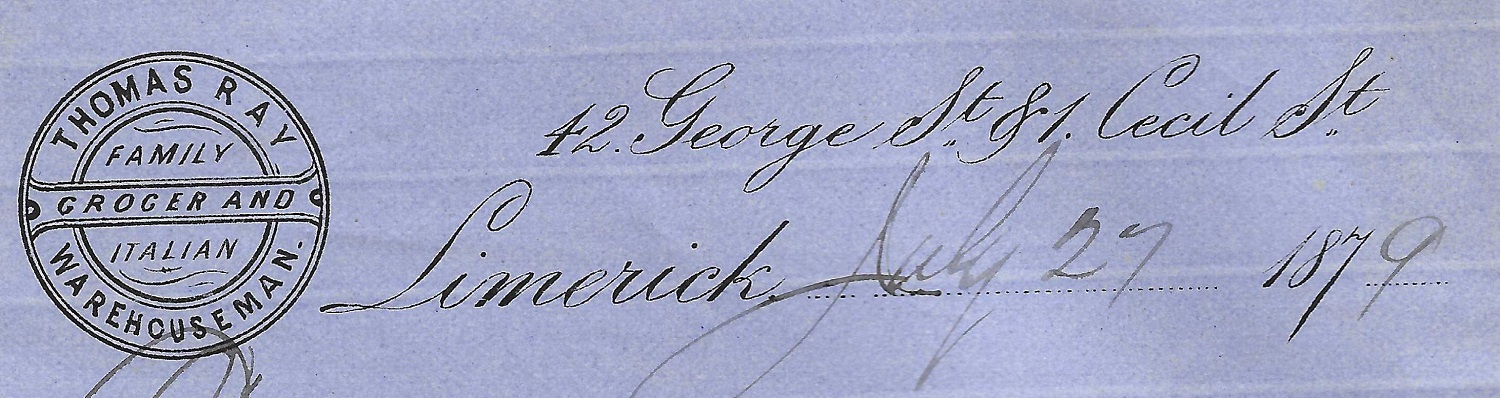 THOMAS RAY
FAMILY
GROCER AND
ITALIAN
WAREHOUSEMAN.
42. George St. & 1. Cecil St.
Limerick, July 27 1879